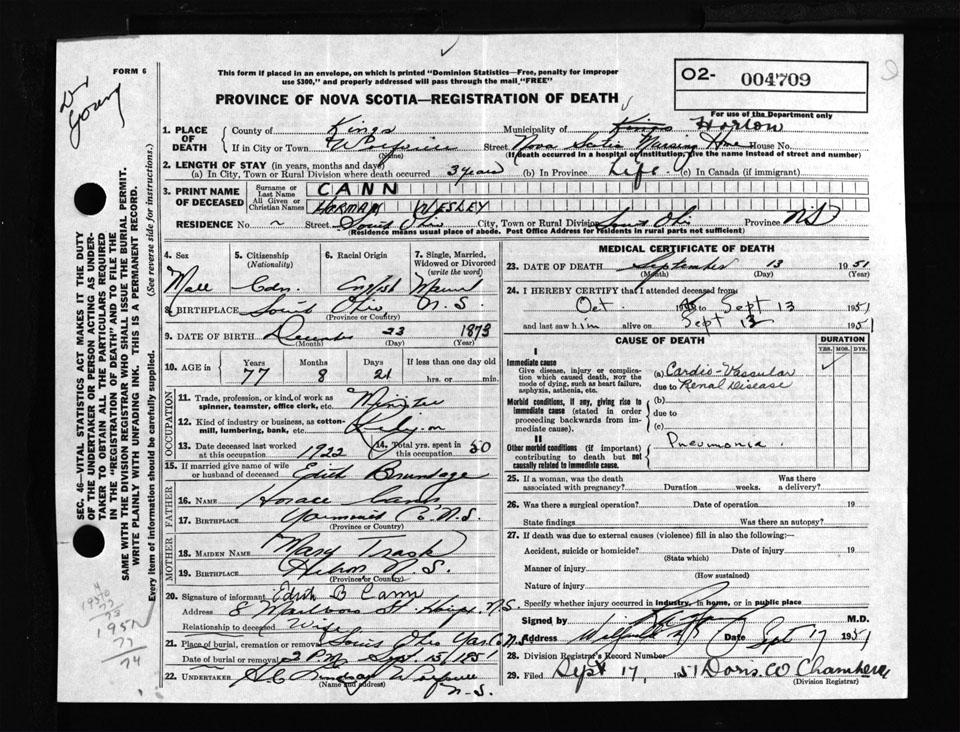 Dr Young
FORM 6
This form if placed in an envelope, on which is printed "Dominion Statistics—Free, penalty for improper
use $300," and properly addressed will pass through the mail, "FREE"
PROVINCE OF NOVA SCOTIA—REGISTRATION OF DEATH
O2- 004709
For use of the Department only
1. PLACE OF DEATH County of Kings Municipality of Kings Horton
If in City or Town Wolfville Street Nova Scotia Nursing Home House No.
(Name) (If death occurred in a hospital or institution, give the name instead of street and number)
2. LENGTH OF STAY (in years, months and days)
(a) In City, Town or Rural Division where death occurred 3 years (b) In Province Life (c) In Canada (if immigrant)
3. PRINT NAME OF DECEASED Surname or Last Name CANN
All Given or Christian Names HORMAN WESLEY
RESIDENCE No. ~ Street South Ohio City, Town or Rural Division South Ohio Province NS
(Residence means usual place of abode. Post Office Address for Residents in rural parts not sufficient)
4. Sex 5. Citizenship (Nationality) 6. Racial Origin 7. Single, Married, Widowed or Divorced (write the word)
Male Cdn. English Married
8. BIRTHPLACE South Ohio N.S.
(Province or Country)
9. DATE OF BIRTH December 23 1873
(Month) (Day) (Year)
10. AGE in Years Months Days If less than one day old
77 8 21 hrs. or min.
OCCUPATION
11. Trade, profession, or kind of work as spinner, teamster, office clerk, etc. Minister
12. Kind of industry or business, as cotton-mill, lumbering, bank, etc. Religion
13. Date deceased last worked at this occupation 1922 14. Total yrs. spent in this occupation 50
15. If married give name of wife or husband of deceased Edith Brundage
FATHER
16. NAME Horace Cann
17. BIRTHPLACE Yarmouth Co. N.S.
(Province or Country)
MOTHER
18. MAIDEN NAME Mary Trask
19. BIRTHPLACE Hebron N.S.
(Province or Country)
20. Signature of informant Edith B Cann
Address 8 Marlboro St. N.S.
Relationship to deceased Wife
21. Place of burial, cremation or removal South Ohio Yar. Co N.S.
Date of burial or removal 2 P.M. Sept. 15, 1951
22. UNDERTAKER Lindsay Wolfville N.S.
(Name and address)
MEDICAL CERTIFICATE OF DEATH
23. DATE OF DEATH September 13 1951
(Month) (Day) (Year)
24. I HEREBY CERTIFY that I attended deceased from
Oct. 19 to Sept 13 1951
and last saw him alive on Sept 13 1951
CAUSE OF DEATH DURATION
YRS. MOS. DYS.
I
Immediate cause
Give disease, injury or complication which caused death, not the mode of dying, such as heart failure, asphyxia, asthenia, etc.
(a) Cardio-Vascular
due to Renal Disease
Morbid conditions, if any, giving rise to immediate cause (stated in order proceeding backwards from immediate cause).
(b)
due to
(c)
II
Other morbid conditions (if important) contributing to death but not causally related to immediate cause.
Pneumonia.
25. If a woman, was the death associated with pregnancy? Duration weeks. Was there a delivery?
26. Was there a surgical operation? Date of operation 19
State findings Was there an autopsy?
27. If death was due to external causes (violence) fill in also the following:—
Accident, suicide or homicide? Date of injury 19
(State which)
Manner of injury
(How sustained)
Nature of injury
Specify whether injury occurred in industry, in home, or in public place
Signed by M.D.
Address Wolfville NS Date Sept 17 1951
28. Division Registrar's Record Number
29. Filed Sept 17, 1951 Doris W Chambers
(Division Registrar)
SEC. 46—VITAL STATISTICS ACT MAKES IT THE DUTY
OF THE UNDERTAKER OR PERSON ACTING AS UNDER-
TAKER TO OBTAIN ALL THE PARTICULARS REQUIRED
IN THE "REGISTRATION OF DEATH" AND TO FILE THE
SAME WITH THE DIVISION REGISTRAR WHO SHALL ISSUE THE BURIAL PERMIT.
WRITE PLAINLY WITH UNFADING INK. THIS IS A PERMANENT RECORD.
Every item of information should be carefully supplied. (See reverse side for instructions.)
1951
77
74